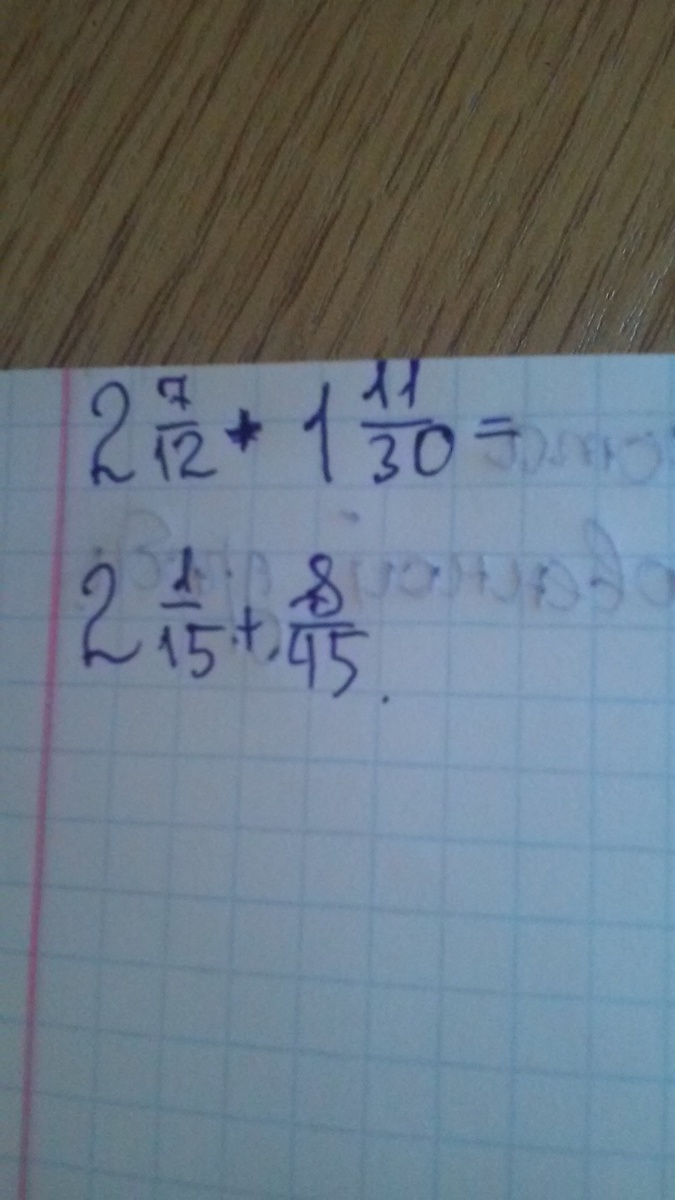 2 7/12 + 1 11/30 =
2 1/15 + 8/45.